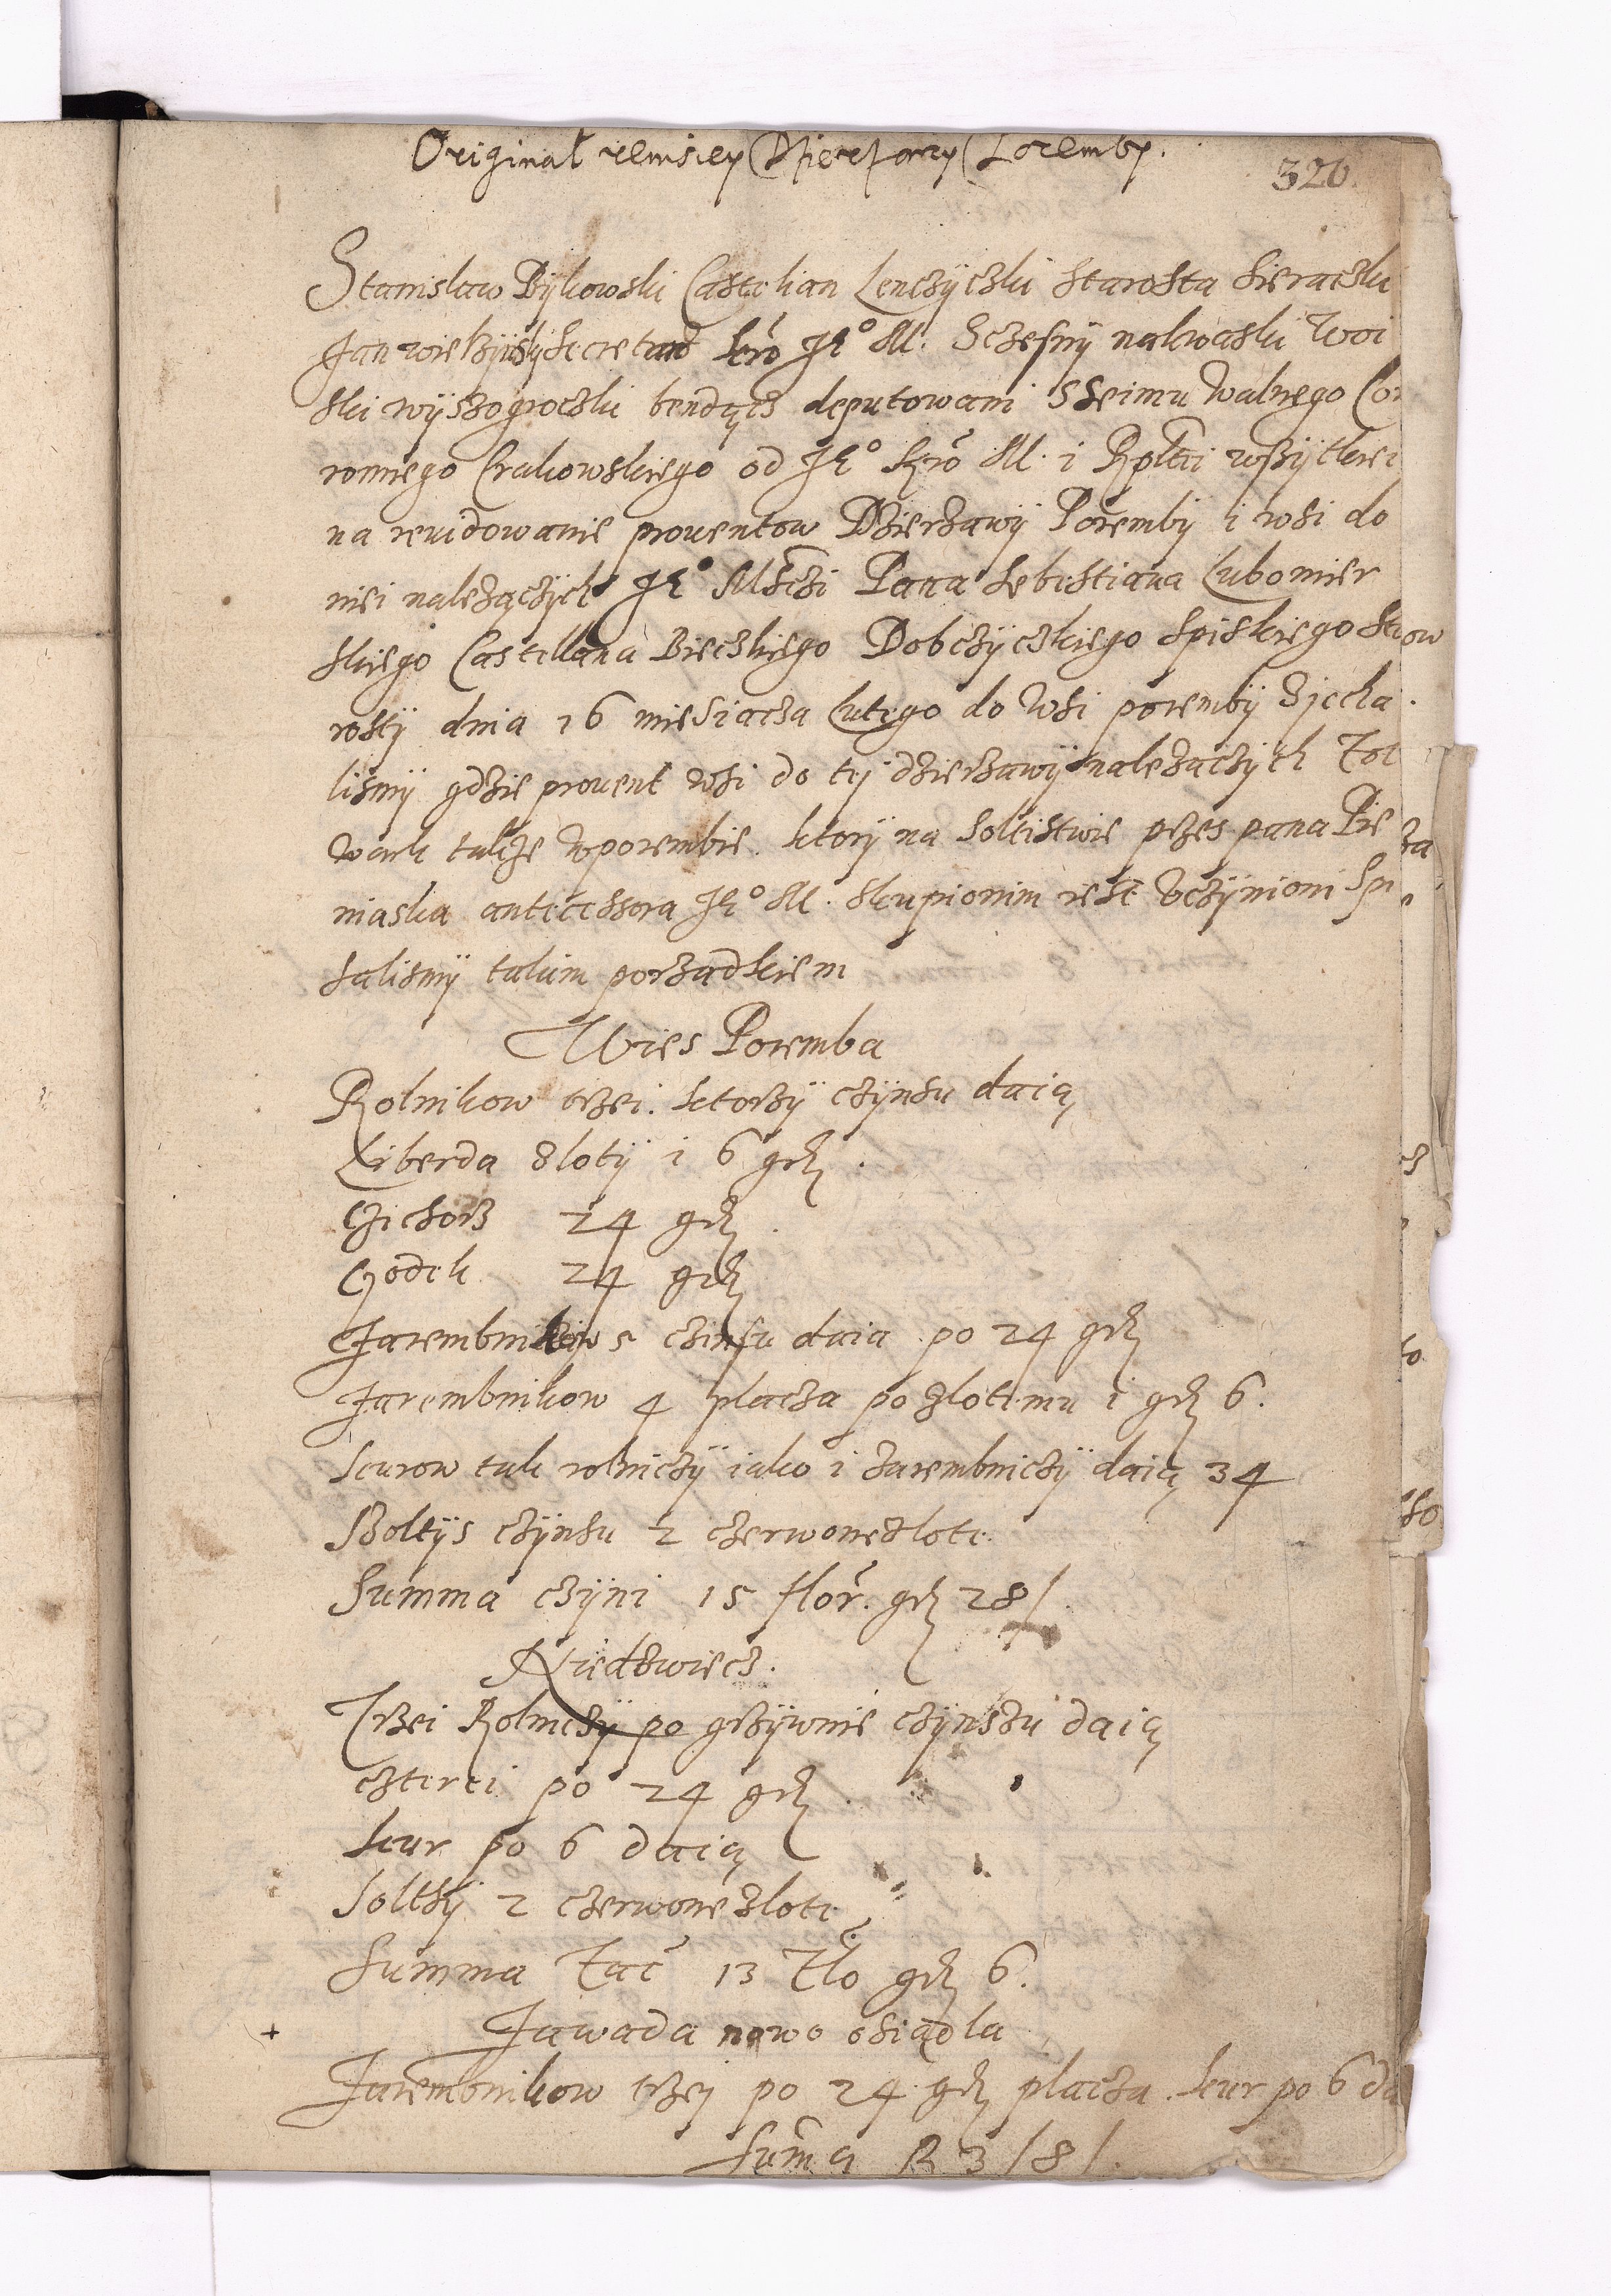 Original rewisiey Dzierzawy Poremby.
320
Stanislaw Bÿkowski Castelian Lenczÿczki Starosta Sieraczki
Jan wielzÿnskÿ Secretarz Kro Je° M. Sczesnÿ nakwaski Woi
ski wÿszogroczki bendącz deputowani Sseimu Walnego Co
ronnego Crakowskiego od Je° Kro M. i Rpltei wszÿtkiei
na reuidowanie prouentow Dzierzawÿ Porembÿ i wsi do
niei nalezączÿch Je° Msczi Pana Sebestiana Lubomier
skiego Castellana Bieczkiego Dobczÿczkiego Spiskiego
rostÿ dnia 16 miesiacza Lutego do Wsi porembÿ zjecha
lismÿ gdzie prouent wsi do tej dzierzawÿ nalezaczÿch Fol
wark takze wporembie ktorÿ na soltistwie przes pana Pie
niaska antecessora Je° M. skupionim iest vczÿnioni Spi
salismÿ takim porzadkiem
Wies Poremba
Rolnikow trzei ktorzÿ czÿnsu daią
Liberda zlotÿ i 6 grz
Czichorz 24 grz
Czodek 24 grz
Zarembnikow 5 czinsu daia po 24 grz
Zarembnikow 4 placza po zlotemu i grz 6.
kurow tak rolniczÿ iako i zarembniczÿ daią 34
Szoltÿs czÿnsu 2 czerwone zlote
Summa czÿni 15 flor. grz 28/.
Niedzwiecz.
Trzei Rolniczÿ po grzÿwnie czÿnszu daią
czterei po 24 grz
kur po 6 daią
Soltsÿ 2 czerwone zlote
Summa fac 13 flo grz 6.
+ Zawada nowo osiadla
Zarembnikow trzej po 24 grz placza kur po 6 da
Suma R 3/8/.